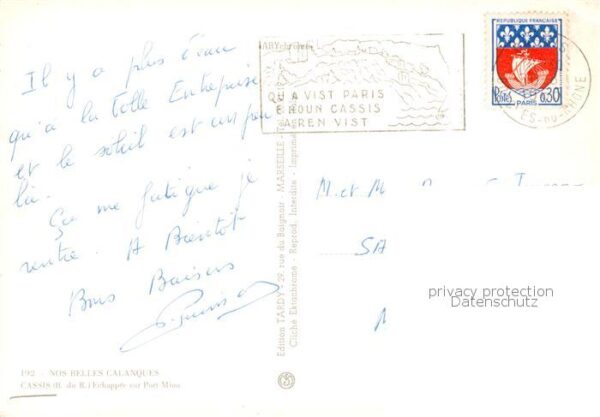 Il y a plus d'eau
qu'à la Folle Entreprise
et le soleil est un peu
là.
Ça me fatigue je
rentre. A Bientôt
Bons Baisers
192 - NOS BELLES CALANQUES
CASSIS (B. du R.) Echappée sur Port Miou
Edition TARDY - 29, rue du Baignoir - MARSEILLE
Cliché Ektachrome - Reprod. Interdite - Imprimé
QU A VIST PARIS
E NOUN CASSIS
A REN VIST
REPUBLIQUE FRANÇAISE
POSTES
0,30
PARIS
ES-DU-RHONE
M. et M
SA
privacy protection
Datenschutz